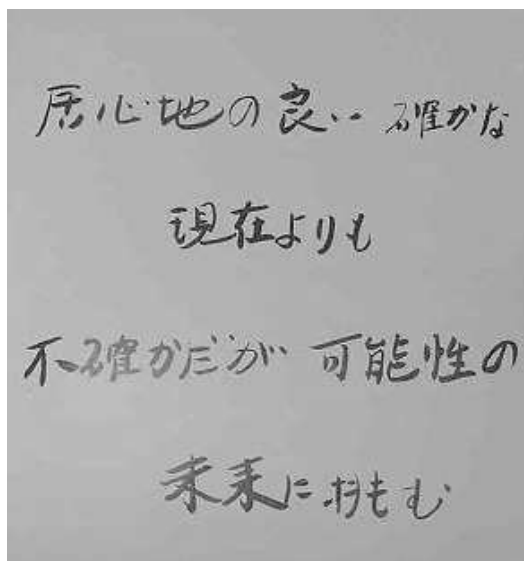 居心地の良い 確かな
現在よりも
不確かだが 可能性の
未来に挑む